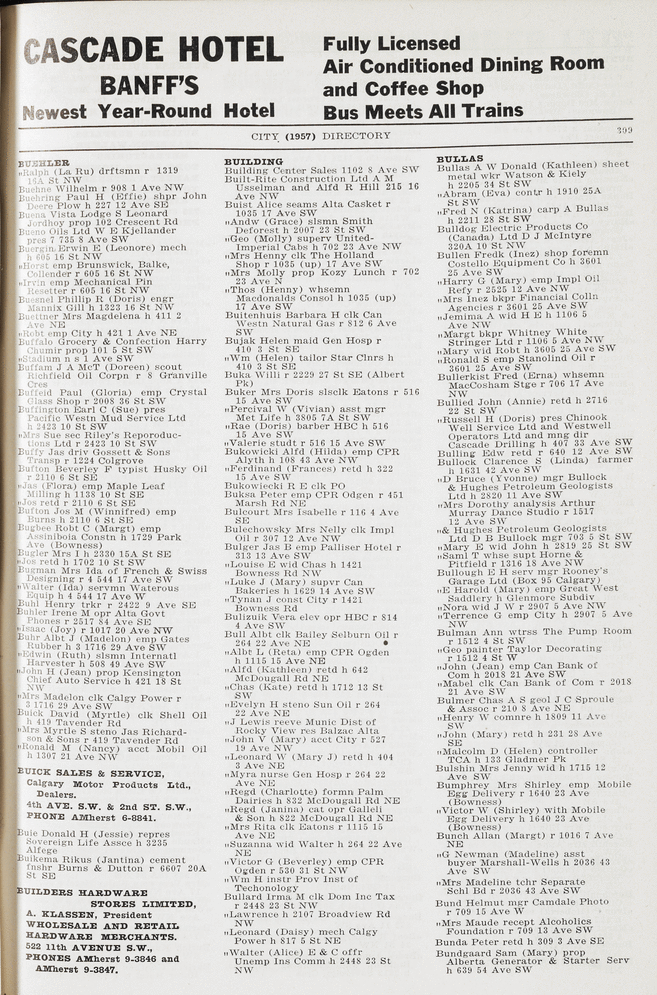 CASCADE HOTEL
BANFF'S
Newest Year-Round Hotel
Fully Licensed
Air Conditioned Dining Room
and Coffee Shop
Bus Meets All Trains
CITY (1957) DIRECTORY
399
BUEHLER
"Ralph (La Ru) drftsmn r 1319
16A St NW
Buehne Wilhelm r 908 1 Ave NW
Buehring Paul H (Effie) shpr John
Deere Plow h 227 12 Ave SE
Buena Vista Lodge S Leonard
Jordhoy prop 102 Crescent Rd
Bueno Oils Ltd W E Kjellander
pres 7 735 8 Ave SW
Buergin Erwin E (Leonore) mech
h 605 16 St NW
"Horst emp Brunswick, Balke,
Collender r 605 16 St NW
"Irvin emp Mechanical Pin
Resetter r 605 16 St NW
Buessel Phillip R (Doris) engr
Mannix Gill h 1323 16 St NW
Buettner Mrs Magdelena h 411 2
Ave NE
"Robt emp City h 421 1 Ave NE
Buffalo Grocery & Confection Harry
Chumir prop 101 5 St SW
"Stadium n s 1 Ave SW
Buffam J A McT (Doreen) scout
Richfield Oil Corpn r 8 Granville
Cres
Buffeid Paul (Gloria) emp Crystal
Glass Shop r 2008 36 St SW
Buffington Earl C (Sue) pres
Pacific Westn Mud Service Ltd
h 2423 10 St SW
"Mrs Sue sec Riley's Reproduc-
tions Ltd r 2423 10 St SW
Buffy Jas driv Gossett & Sons
Transp r 1224 Colgrove
Bufton Beverley F typist Husky Oil
r 2110 6 St SE
"Jas (Flora) emp Maple Leaf
Milling h 1138 10 St SE
"Jos retd r 2110 6 St SE
Bufton Jos M (Winnifred) emp
Burns h 2110 6 St SE
Bugbee Robt C (Margt) emp
Assiniboia Constn h 1729 Park
Ave (Bowness)
Bugler Mrs I h 2330 15A St SE
"Jos retd h 1702 10 St SW
Bugman Mrs Ida of French & Swiss
Designing r 4 544 17 Ave SW
"Walter (Ida) servmn Waterous
Equip h 4 544 17 Ave W
Buhl Henry trkr r 2422 9 Ave SE
Buhler Irene M opr Alta Govt
Phones r 2517 84 Ave SE
"Isaac (Joy) r 1017 20 Ave NW
Buhr Albt J (Madelon) emp Gates
Rubber h 3 1716 29 Ave SW
"Edwin (Ruth) slsmn Internatl
Harvester h 508 49 Ave SW
"John H (Jean) prop Kensington
Chief Auto Service h 421 18 St
NW
"Mrs Madelon clk Calgy Power r
3 1716 29 Ave SW
Buick David (Myrtle) clk Shell Oil
h 419 Tavender Rd
"Mrs Myrtle S steno Jas Richard-
son & Sons r 419 Tavender Rd
"Ronald M (Nancy) acct Mobil Oil
h 1307 21 Ave NW
BUICK SALES & SERVICE,
Calgary Motor Products Ltd.,
Dealers.
4th AVE. S.W. & 2nd ST. S.W.,
PHONE AMherst 6-8841.
Buie Donald H (Jessie) repres
Sovereign Life Assce h 3235
Alfege
Buikema Rikus (Jantina) cement
fnshr Burns & Dutton r 6607 20A
St SE
BUILDERS HARDWARE
STORES LIMITED,
A. KLASSEN, President
WHOLESALE AND RETAIL
HARDWARE MERCHANTS.
522 11th AVENUE S.W.,
PHONES AMherst 9-3846 and
AMherst 9-3847.
BUILDING
Building Center Sales 1102 8 Ave SW
Built-Rite Construction Ltd A M
Usselman and Alfd R Hill 215 16
Ave NW
Buist Alice seams Alta Casket r
1035 17 Ave SW
"Andw (Grace) slsmn Smith
Deforest h 2007 23 St SW
"Geo (Molly) superv United-
Imperial Cabs h 702 23 Ave NW
"Mrs Henny clk The Holland
Shop r 1035 (up) 17 Ave SW
"Mrs Molly prop Kozy Lunch r 702
23 Ave N
"Thos (Henny) whsemn
Macdonalds Consol h 1035 (up)
17 Ave SW
Buitenhuis Barbara H clk Can
Westn Natural Gas r 812 6 Ave
SW
Bujak Helen maid Gen Hosp r
410 3 St SE
"Wm (Helen) tailor Star Clnrs h
410 3 St SE
Buka Willi r 2229 27 St SE (Albert
Pk)
Buker Mrs Doris slsclk Eatons r 516
15 Ave SW
"Percival W (Vivian) asst mgr
Met Life h 3805 7A St SW
"Rae (Doris) barber HBC h 516
15 Ave SW
"Valerie studt r 516 15 Ave SW
Bukowicki Alfd (Hilda) emp CPR
Alyth h 108 43 Ave NW
"Ferdinand (Frances) retd h 322
15 Ave SW
Bukowiecki R E clk PO
Buksa Peter emp CPR Ogden r 451
Marsh Rd NE
Bulcourt Mrs Isabelle r 116 4 Ave
SW
Bulechowsky Mrs Nelly clk Impl
Oil r 307 12 Ave NW
Bulger Jas B emp Palliser Hotel r
313 13 Ave SW
"Louise E wid Chas h 1421
Bowness Rd NW
"Luke J (Mary) supvr Can
Bakeries h 1629 14 Ave SW
"Tynan J const City r 1421
Bowness Rd
Bulizuik Vera elev opr HBC r 814
4 Ave SW
Bull Albt clk Bailey Selburn Oil r
264 22 Ave NE
"Albt L (Reta) emp CPR Ogden
h 1115 15 Ave NE
"Alfd (Kathleen) retd h 642
McDougall Rd NE
"Chas (Kate) retd h 1712 13 St
SW
"Evelyn H steno Sun Oil r 264
22 Ave NE
"J Lewis reeve Munic Dist of
Rocky View res Balzac Alta
"John V (Mary) acct City r 527
19 Ave NW
"Leonard W (Mary J) retd h 404
3 Ave NE
"Myra nurse Gen Hosp r 264 22
Ave NE
"Regd (Charlotte) formn Palm
Dairies h 832 McDougall Rd NE
"Regd (Janina) cat opr Gallell
& Son h 822 McDougall Rd NE
"Mrs Rita clk Eatons r 1115 15
Ave NE
"Suzanna wid Walter h 264 22 Ave
NE
"Victor G (Beverley) emp CPR
Ogden r 530 31 St NW
"Wm H instr Prov Inst of
Techonology
Bullard Irma M clk Dom Inc Tax
r 2448 23 St NW
"Lawrence h 2107 Broadview Rd
NW
"Leonard (Daisy) mech Calgy
Power h 817 5 St NE
"Walter (Alice) E & C offr
Unemp Ins Comm h 2448 23 St
NW
BULLAS
Bullas A W Donald (Kathleen) sheet
metal wkr Watson & Kiely
h 2205 34 St SW
"Abram (Eva) contr h 1910 25A
St SW
"Fred N (Katrina) carp A Bullas
h 2211 28 St SW
Bulldog Electric Products Co
(Canada) Ltd D J McIntyre
320A 10 St NW
Bullen Fredk (Inez) shop foremn
Costello Equipment Co h 3601
25 Ave SW
"Harry G (Mary) emp Impl Oil
Refy r 2525 12 Ave NW
"Mrs Inez bkpr Financial Colln
Agencies r 3601 25 Ave SW
"Jemima A wid H E h 1106 5
Ave NW
"Margt bkpr Whitney White
Stringer Ltd r 1106 5 Ave NW
"Mary wid Robt h 3605 25 Ave SW
"Ronald S emp Stanolind Oil r
3601 25 Ave SW
Bullerkist Fred (Erna) whsemn
MacCosham Stge r 706 17 Ave
NW
Bullied John (Annie) retd h 2716
22 St SW
"Russell H (Doris) pres Chinook
Well Service Ltd and Westwell
Operators Ltd and mng dir
Cascade Drilling h 407 33 Ave SW
Bulling Edw retd r 640 12 Ave SW
Bullock Clarence S (Linda) farmer
h 1631 42 Ave SW
"D Bruce (Yvonne) mgr Bullock
& Hughes Petroleum Geologists
Ltd h 2820 11 Ave SW
"Mrs Dorothy analysis Arthur
Murray Dance Studio r 1517
12 Ave SW
"& Hughes Petroleum Geologists
Ltd D B Bullock mgr 703 5 St SW
"Mary E wid John h 2819 25 St SW
"Saml T whse supt Horne &
Pitfield r 1316 18 Ave NW
Bullough E H serv mgr Rooney's
Garage Ltd (Box 95 Calgary)
"E Harold (Mary) emp Great West
Saddlery h Glenmore Subdiv
"Nora wid J W r 2907 5 Ave NW
"Terrence G emp City h 2907 5 Ave
NW
Bulman Ann wtrss The Pump Room
r 1512 4 St SW
"Geo painter Taylor Decorating
r 1512 4 St SW
"John (Jean) emp Can Bank of
Com h 2018 21 Ave SW
"Mabel clk Can Bank of Com r 2018
21 Ave SW
Bulmer Chas A S geol J C Sproule
& Assoc r 210 8 Ave NE
"Henry W comnre h 1809 11 Ave
SW
"John (Mary) retd h 231 28 Ave
SE
"Malcolm D (Helen) controller
TCA h 133 Gladmer Pk
Bulshin Mrs Jenny wid h 1715 12
Ave SW
Bumphrey Mrs Shirley emp Mobile
Egg Delivery r 1640 23 Ave
(Bowness)
"Victor W (Shirley) with Mobile
Egg Delivery h 1640 23 Ave
(Bowness)
Bunch Allan (Margt) r 1016 7 Ave
NE
"G Newman (Madeline) asst
buyer Marshall-Wells h 2036 43
Ave SW
"Mrs Madeline tchr Separate
Schl Bd r 2036 43 Ave SW
Bund Helmut mgr Camdale Photo
r 709 15 Ave W
"Mrs Maude recept Alcoholics
Foundation r 709 13 Ave SW
Bunda Peter retd h 309 3 Ave SE
Bundgaard Sam (Mary) prop
Alberta Generator & Starter Serv
h 639 54 Ave SW